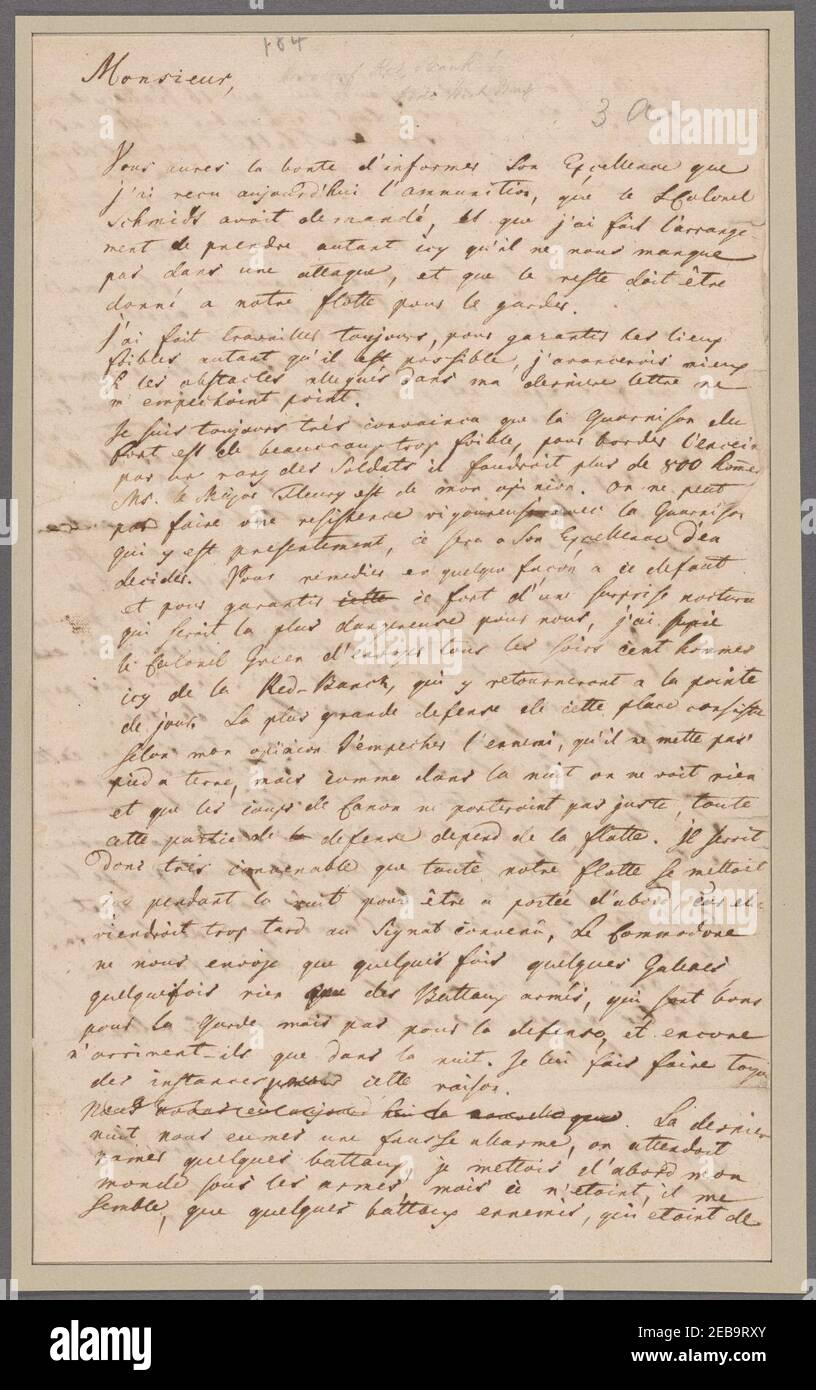 184
Monsieur,
3 a
Vous aures la bonte d'informer Son Excellence que
j'ai recu aujourd'hui l'ammunition, que le LColonel
Schmids avoit demandé, et que j'ai fait l'arrange-
ment de prendre autant icy qu'il ne nous manque
pas dans une attaque, et que le reste doit être
donné a notre flotte pour le garder.
J'ai fait travailler toujours, pour garantir les lieux
foibles autant qu'il est possible, j'avancerois mieux
les obstacles allegués dans ma derniere lettre ne
m'empechoint point.
Je suis toujours très convaincu que la Guarnison du
fort est de beaucoup trop foible, pour border l'encein
par un rang des Soldats il faudroit plus de 800 homes
Mr. le Major Fleury est de mon opinion. On ne peut
pas faire une resistence vigoureuse avec la Guarnison
qui y est presentement, ce sera a Son Excellence d'en
decider. Vous remedier en quelque façon a ce defaut
et pour garantir cette ce fort d'une surprise nocturn
qui seroit la plus dangereuse pour nous, j'ai prié
le Colonel Green d'envoyer tous les soirs cent hommes
icy de la Red-Banck, qui y retourneront a la pointe
de jour. La plus grande defense de cette place consiste
selon mon opinion d'empecher l'ennemi, qu'il ne mette pas
pied a terre, mais comme dans la nuit on ne voit rien
et que les coups de Canon ne porteroint pas juste, toute
cette partie de la defense depend de la flotte. Il seroit
donc tres convenable que toute notre flotte se mettoit
icy pendant la nuit pour être a portée d'abord, car el
viendroit trop tard au Signal convenû, Le Commodore
ne nous envoje que quelques fois quelques Galeres,
quelquefois rien que des Battaux armés, qui sont bons
pour la Garde mais pas pour la defense, et encore
n'arrivent-ils que dans la nuit. Je lui fais faire toujou
des instances pour cette raison.
La dernier
nuit nous eumes une fausse allarme, on attendoit
ramer quelques battaux, je mettois d'abord mon
monde sous les armes, mais ce n'etoint, il me
semble, que quelques battaux ennemis, qui etoint de
alamy
Image ID: 2EB9RXY
www.alamy.com